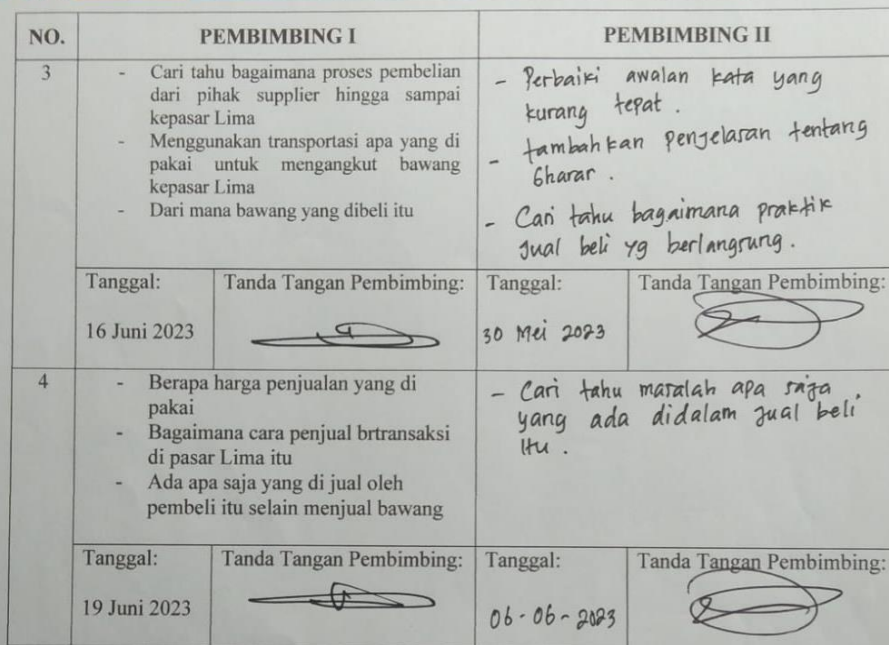 NO.
PEMBIMBING I
PEMBIMBING II
3
- Cari tahu bagaimana proses pembelian
dari pihak supplier hingga sampai
kepasar Lima
- Menggunakan transportasi apa yang di
pakai untuk mengangkut bawang
kepasar Lima
- Dari mana bawang yang dibeli itu
- Perbaiki awalan kata yang
kurang tepat.
- tambahkan penjelasan tentang
Gharar.
- Cari tahu bagaimana praktik
jual beli yg berlangsung.
Tanggal:
16 Juni 2023
Tanda Tangan Pembimbing:
Tanggal:
30 Mei 2023
Tanda Tangan Pembimbing:
4
- Berapa harga penjualan yang di
pakai
- Bagaimana cara penjual brtransaksi
di pasar Lima itu
- Ada apa saja yang di jual oleh
pembeli itu selain menjual bawang
- Cari tahu masalah apa saja
yang ada didalam jual beli
itu.
Tanggal:
19 Juni 2023
Tanda Tangan Pembimbing:
Tanggal:
06-06-2023
Tanda Tangan Pembimbing: